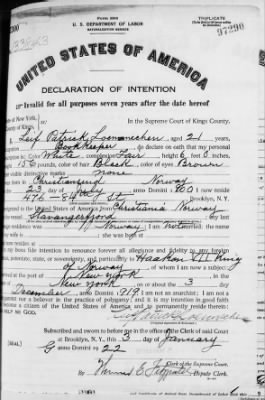 Form 203
U. S. DEPARTMENT OF LABOR
NATURALIZATION SERVICE
TRIPLICATE
97290
UNITED STATES OF AMERICA
DECLARATION OF INTENTION
Invalid for all purposes seven years after the date hereof
of New York,
of Kings.
In the Supreme Court of Kings County.
Leif Patrick aged 21 years,
Bookkeeper do declare on oath that my personal
description is: Color White, complexion Fair, height 6 feet 0 inches,
156 pounds, color of hair Black, color of eyes Brown
visible distinctive marks
none
Christiansund Norway
23 day of anno Domini 1901 I now reside
476 - 84 St Brooklyn, N.Y.
to the United States of America from Christiania Norway
Stavangerfjord my last
residence was Norway; I am not married; the name
she was born at
my bona fide intention to renounce forever all allegiance and fidelity to any foreign
potentate, state, or sovereignty, and particularly to Haakon VII King
of Norway of whom I am now a subject;
at the port of New York
New York on or about the 3 day
December anno Domini 1919. I am not an anarchist; I am not a
polygamist nor a believer in the practice of polygamy; and it is my intention in good faith
to become a citizen of the United States of America and to permanently reside therein:
HELP ME GOD.
Subscribed and sworn to before me in the office of the Clerk of said Court
at Brooklyn, N. Y., this 3 day of January
anno Domini 1922
[SEAL]
Clerk of the Supreme Court.
Special Deputy Clerk.